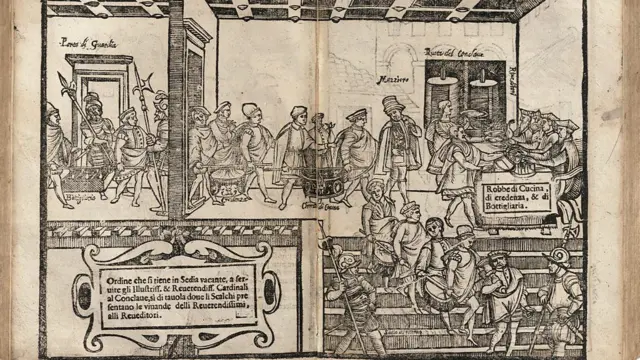 Porta di Guardia
Ruota del Conclave
Mazziero
Robbe di Cucina,
di credenza, & di
Bottigliaria.
Ordine che si tiene in Sedia vacante, a ser
uire gli Illustriss. & Reuerendiss. Cardinali
al Conclaue, si di tauola doue li Scalchi pre
sentano le uiuande delli Reuerendissimi,
alli Reueditori.